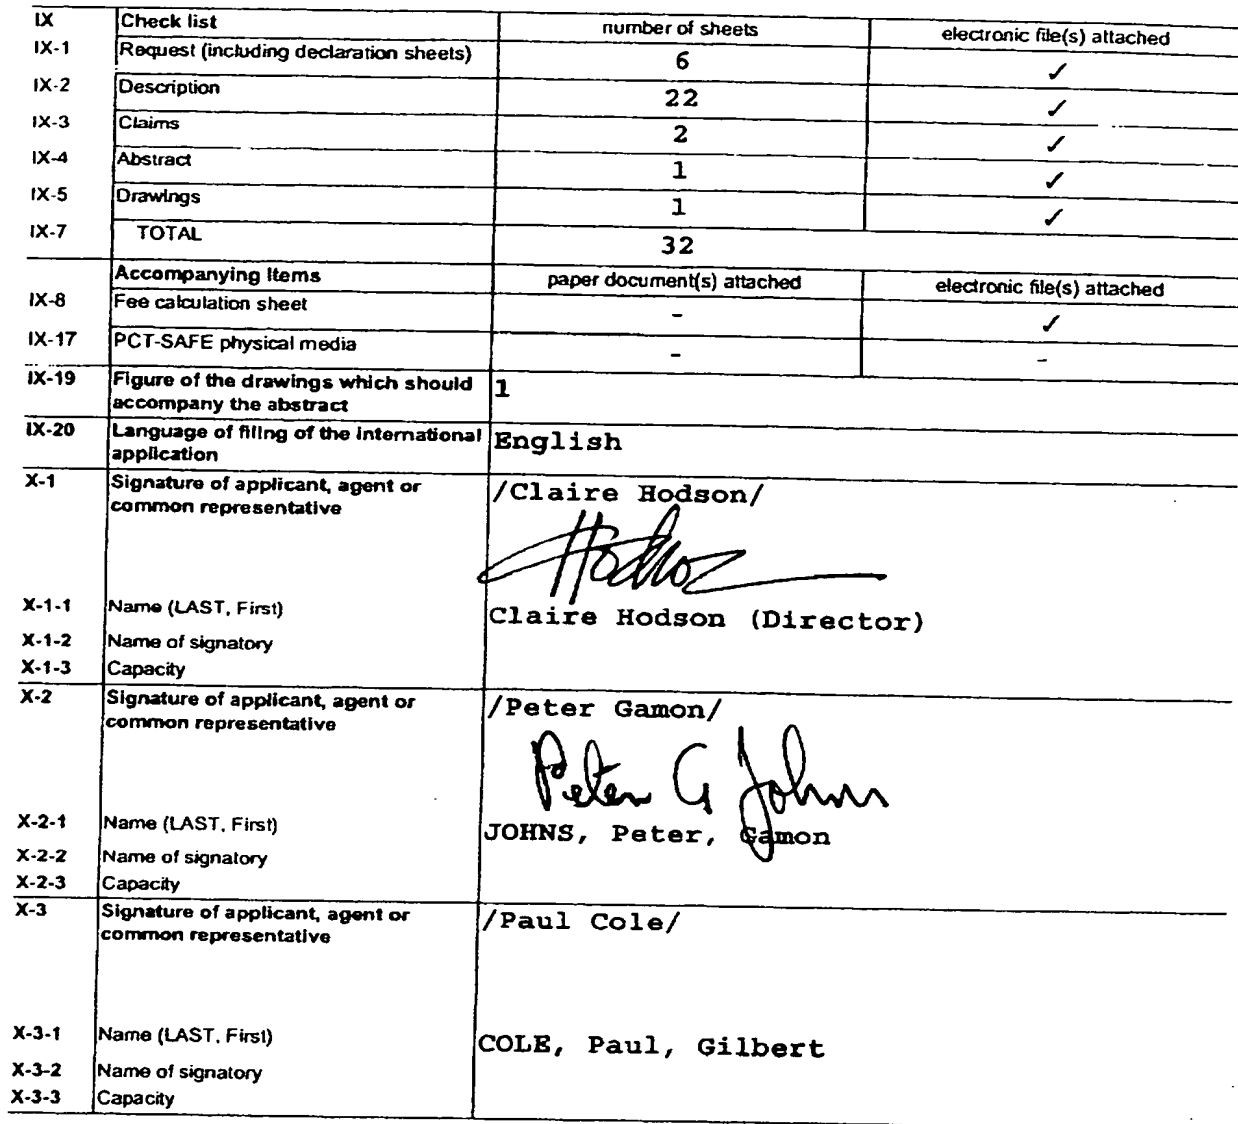 IX Check list number of sheets electronic file(s) attached
IX-1 Request (including declaration sheets) 6 ✓
IX-2 Description 22 ✓
IX-3 Claims 2 ✓
IX-4 Abstract 1 ✓
IX-5 Drawings 1 ✓
IX-7 TOTAL 32
Accompanying Items paper document(s) attached electronic file(s) attached
IX-8 Fee calculation sheet - ✓
IX-17 PCT-SAFE physical media - -
IX-19 Figure of the drawings which should 1
accompany the abstract
IX-20 Language of filing of the international English
application
X-1 Signature of applicant, agent or /Claire Hodson/
common representative
Hodson
X-1-1 Name (LAST, First) Claire Hodson (Director)
X-1-2 Name of signatory
X-1-3 Capacity
X-2 Signature of applicant, agent or /Peter Gamon/
common representative
Peter G Johns
X-2-1 Name (LAST, First) JOHNS, Peter, Gamon
X-2-2 Name of signatory
X-2-3 Capacity
X-3 Signature of applicant, agent or /Paul Cole/
common representative
X-3-1 Name (LAST, First) COLE, Paul, Gilbert
X-3-2 Name of signatory
X-3-3 Capacity